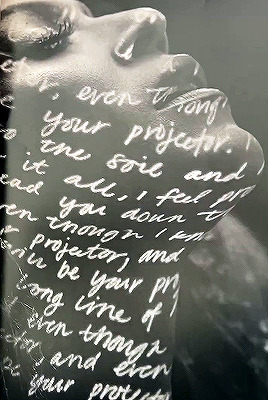 or, even though
your projector.
o the soil and
it all, I feel
ead you down
ven though I
r projector, and
will be your
long line of
even though
or and even
your projector